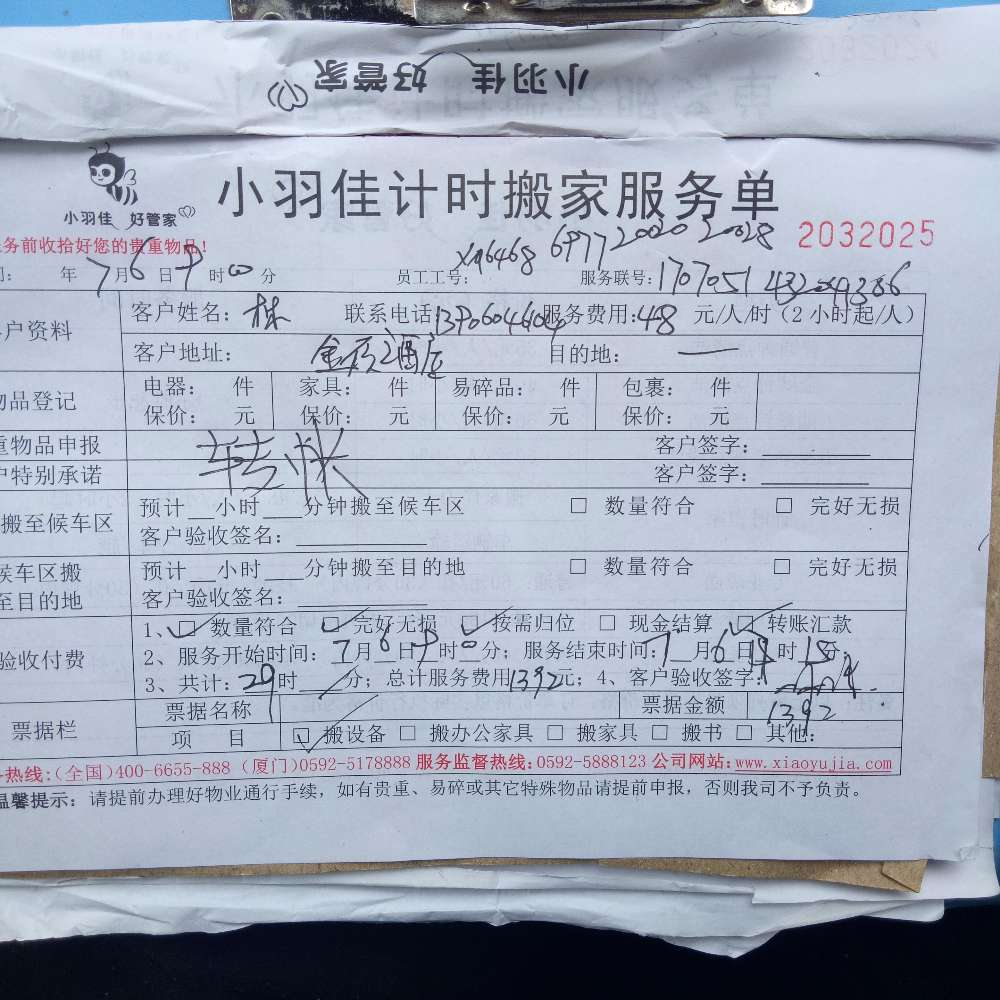 小羽佳 好管家
小羽佳 好管家
小羽佳计时搬家服务单
2032025
务前收拾好您的贵重物品!
年7月6日 时00分 员工工号: 6977 2020 2028 服务联号:
户资料 客户姓名:林 联系电话: 服务费用:48元/人/时(2小时起/人)
客户地址: 目的地:—
物品登记 电器: 件 家具: 件 易碎品: 件 包裹: 件
保价: 元 保价: 元 保价: 元 保价: 元
重物品申报 客户签字:
转账
户特别承诺 客户签字:
搬至候车区 预计__小时___分钟搬至候车区 □ 数量符合 □ 完好无损
客户验收签名:
候车区搬 预计__小时___分钟搬至目的地 □ 数量符合 □ 完好无损
至目的地 客户验收签名:
验收付费 1、☑ 数量符合 ☑ 完好无损 ☑ 按需归位 □ 现金结算 ☑ 转账汇款
2、服务开始时间:7月6日 时0分;服务结束时间:7月6日 时 分;
3、共计:29时 分;总计服务费用1392元;4、客户验收签字:
票据栏 票据名称 票据金额 1392
项 目 ☑ 搬设备 □ 搬办公家具 □ 搬家具 □ 搬书 □ 其他:
热线:(全国)400-6655-888 (厦门)0592-5178888 服务监督热线:0592-5888123 公司网站:www.xiaoyujia.com
温馨提示:请提前办理好物业通行手续,如有贵重、易碎或其它特殊物品请提前申报,否则我司不予负责。